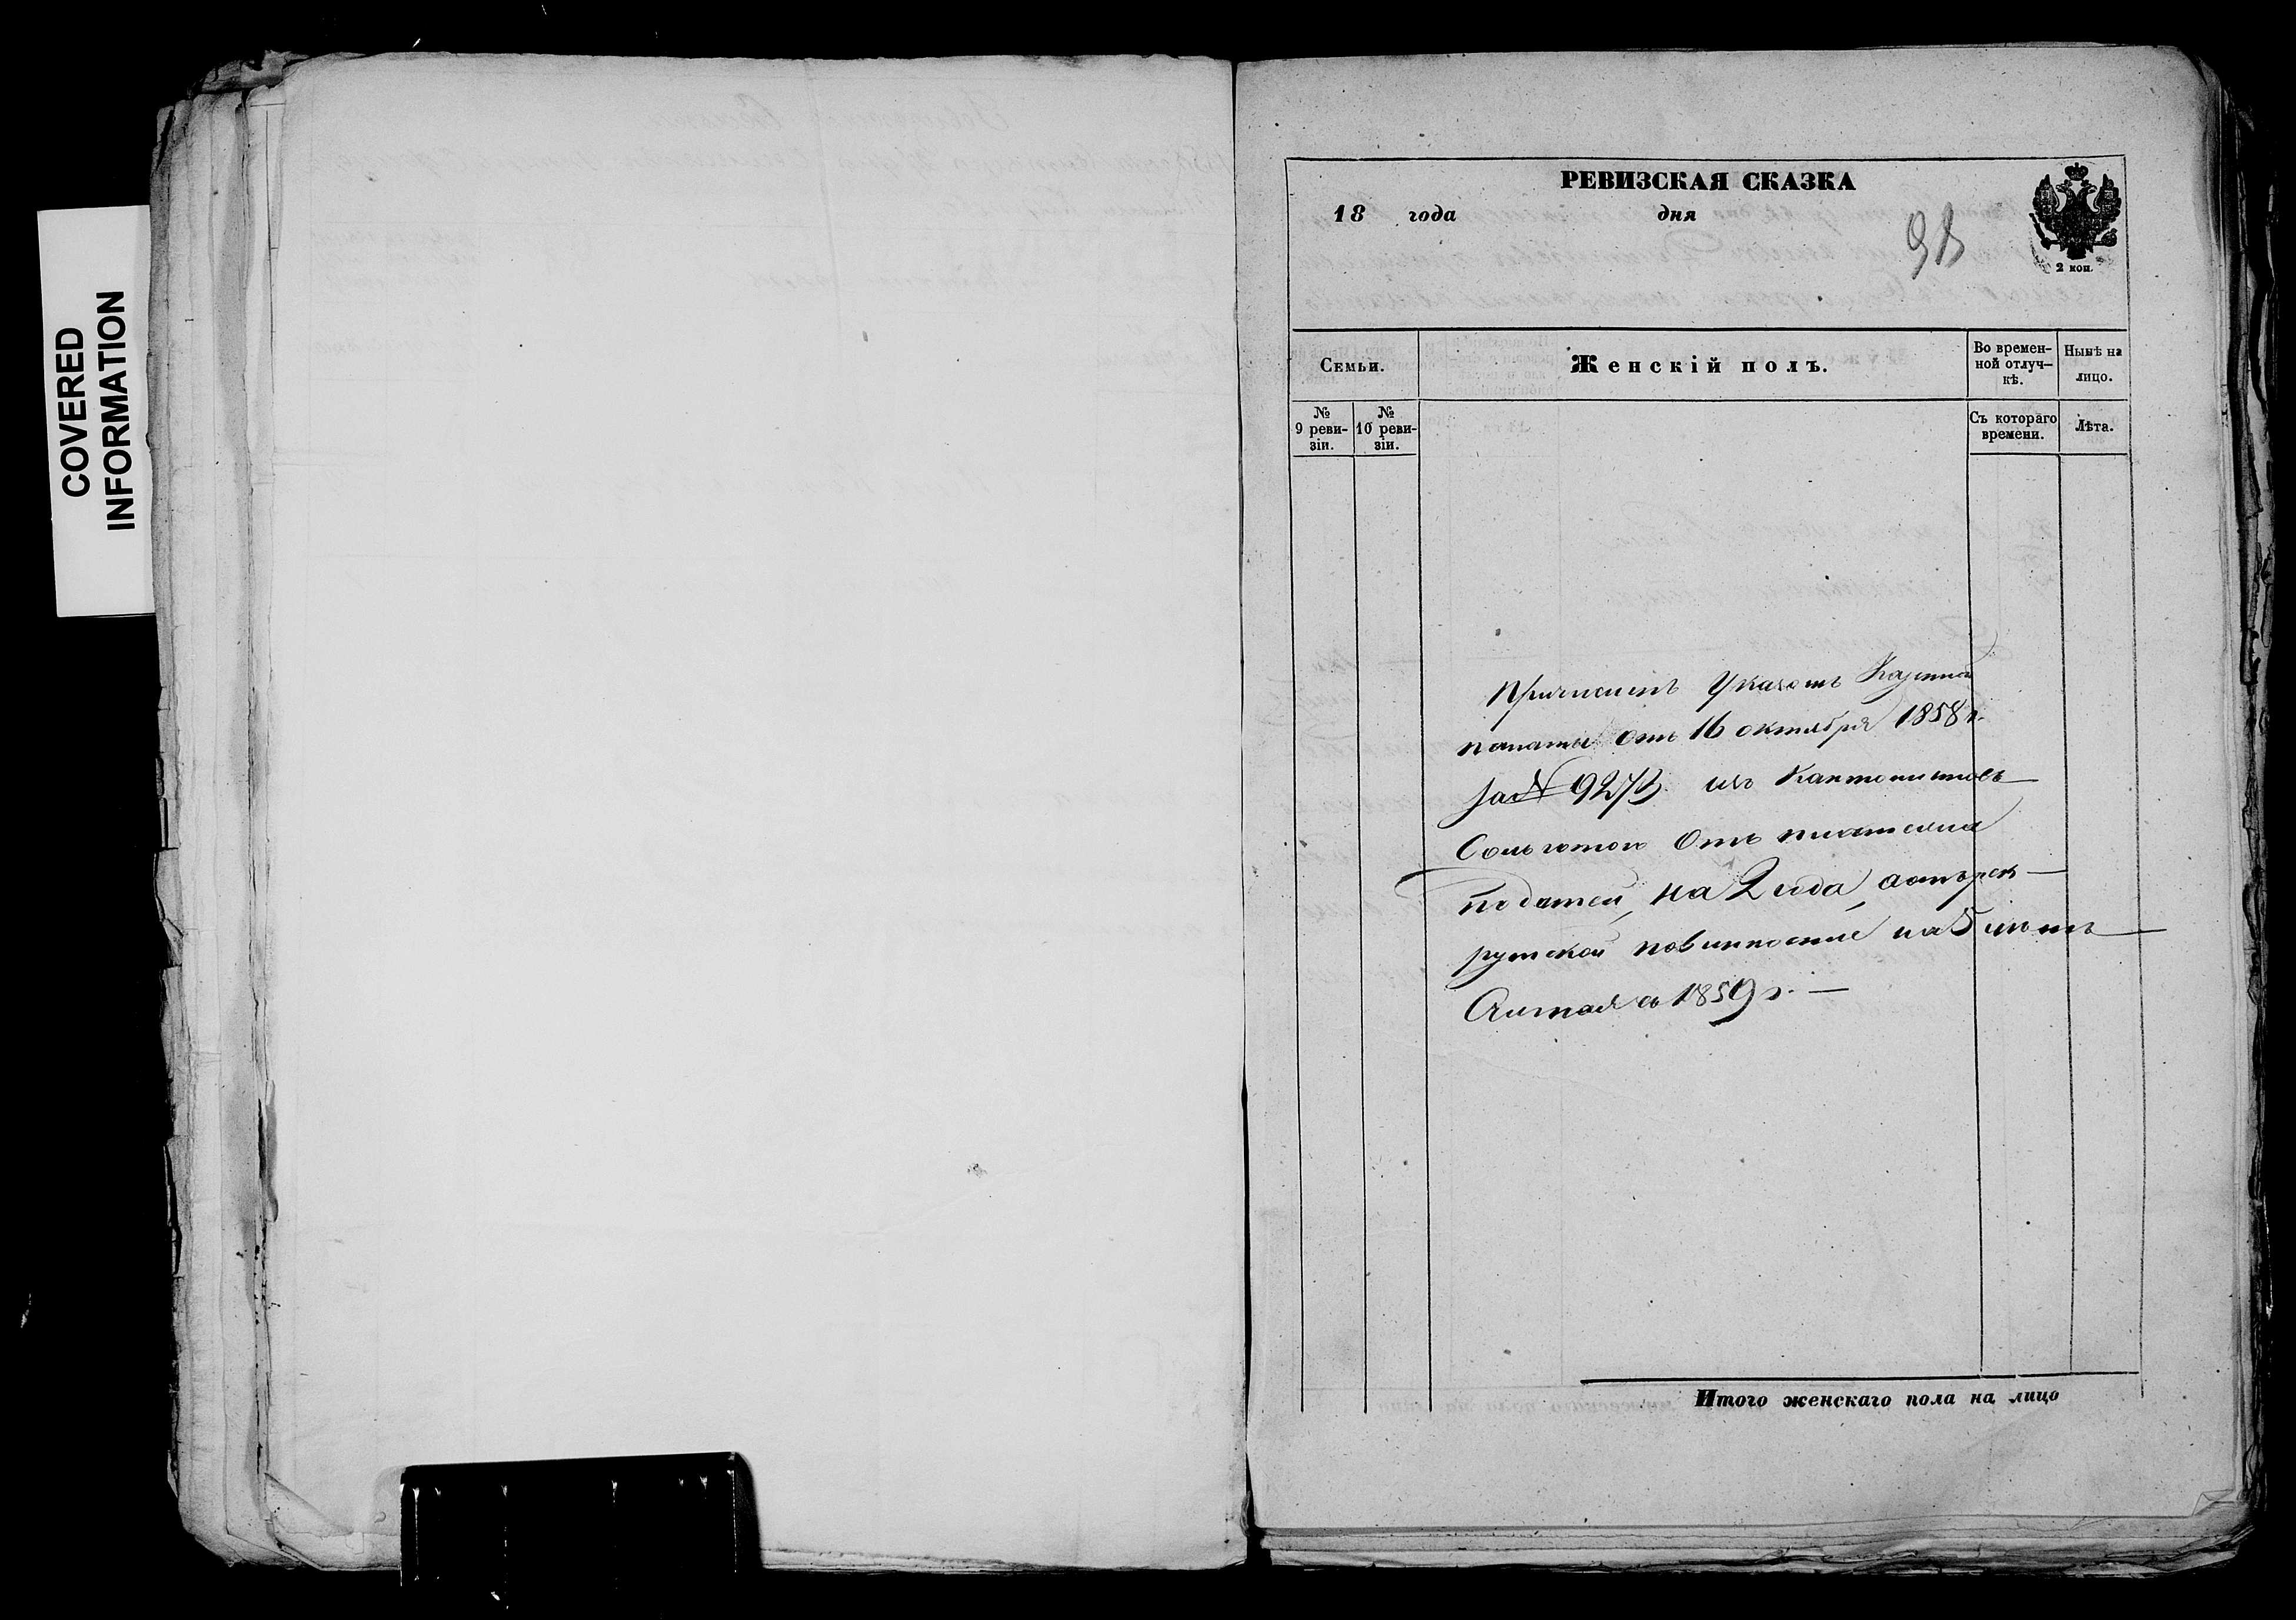 COVERED
INFORMATION
РЕВИЗСКАЯ СКАЗКА
18 года дня
98
2 коп.
Семьи.
Женскій полъ.
Во времен-
ной отлуч-
кѣ.
Нынѣ на
лицо.
№
9 реви-
зіи.
№
10 реви-
зіи.
Съ котораго
времени.
Лѣта.
Причисленъ Указомъ Казенной
палаты отъ 16 октября 1858 г.
за № изъ Кантонистовъ
Сольготою Отъ платежа
податей, на 2 года, аотърек-
рутской повинности на 5 лѣтъ
Считая съ 1859 г. —
Итого женскаго пола на лицо